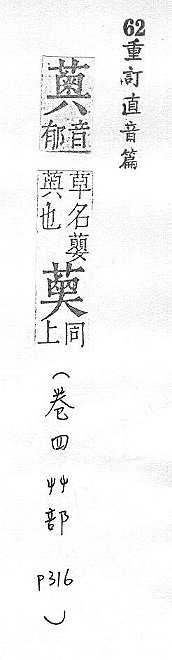 62重訂直音篇
薁音郁草名蘡薁也同上(卷四艸部p316)